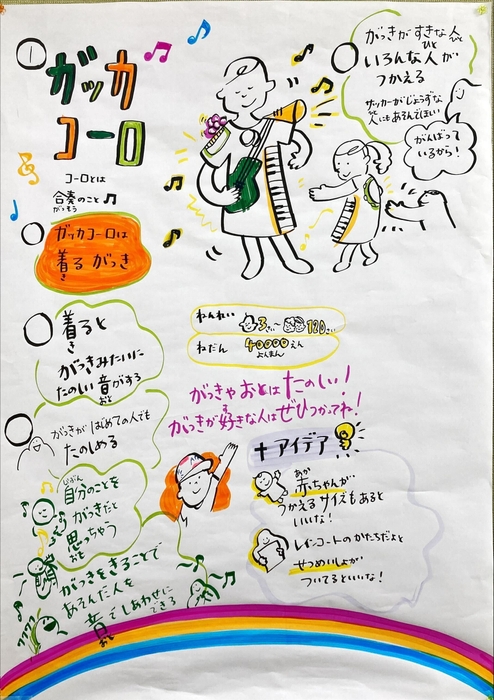 ガッカ
コーロ
コーロとは
合奏のこと
がっそう
ガッカコーロは
着る がっき
き
着ると
き
がっきみたいに
たのしい音がする
おと
がっきが はじめての人でも
たのしめる
自分のことを
じぶん
がっきだと
思っちゃう
おも
がっきをきることで
あそんだ人を
音でしあわせに
できる
おと
がっきがすきな人と
ひと
いろんな人が
つかえる
サッカーがじょうずな
人にもあそんでほしい
ひと
がんばって
いるから!
ねんれい
3さい〜 120さい
ねだん 40000えん
よんまん
がっきやおとはたのしい!
がっきが好きな人はぜひつかってね!
す
+アイデア
あか
赤ちゃんが
つかえるサイズもあると
いいな!
レインコートのかたちだよと
せつめいしょが
ついてるといいな!